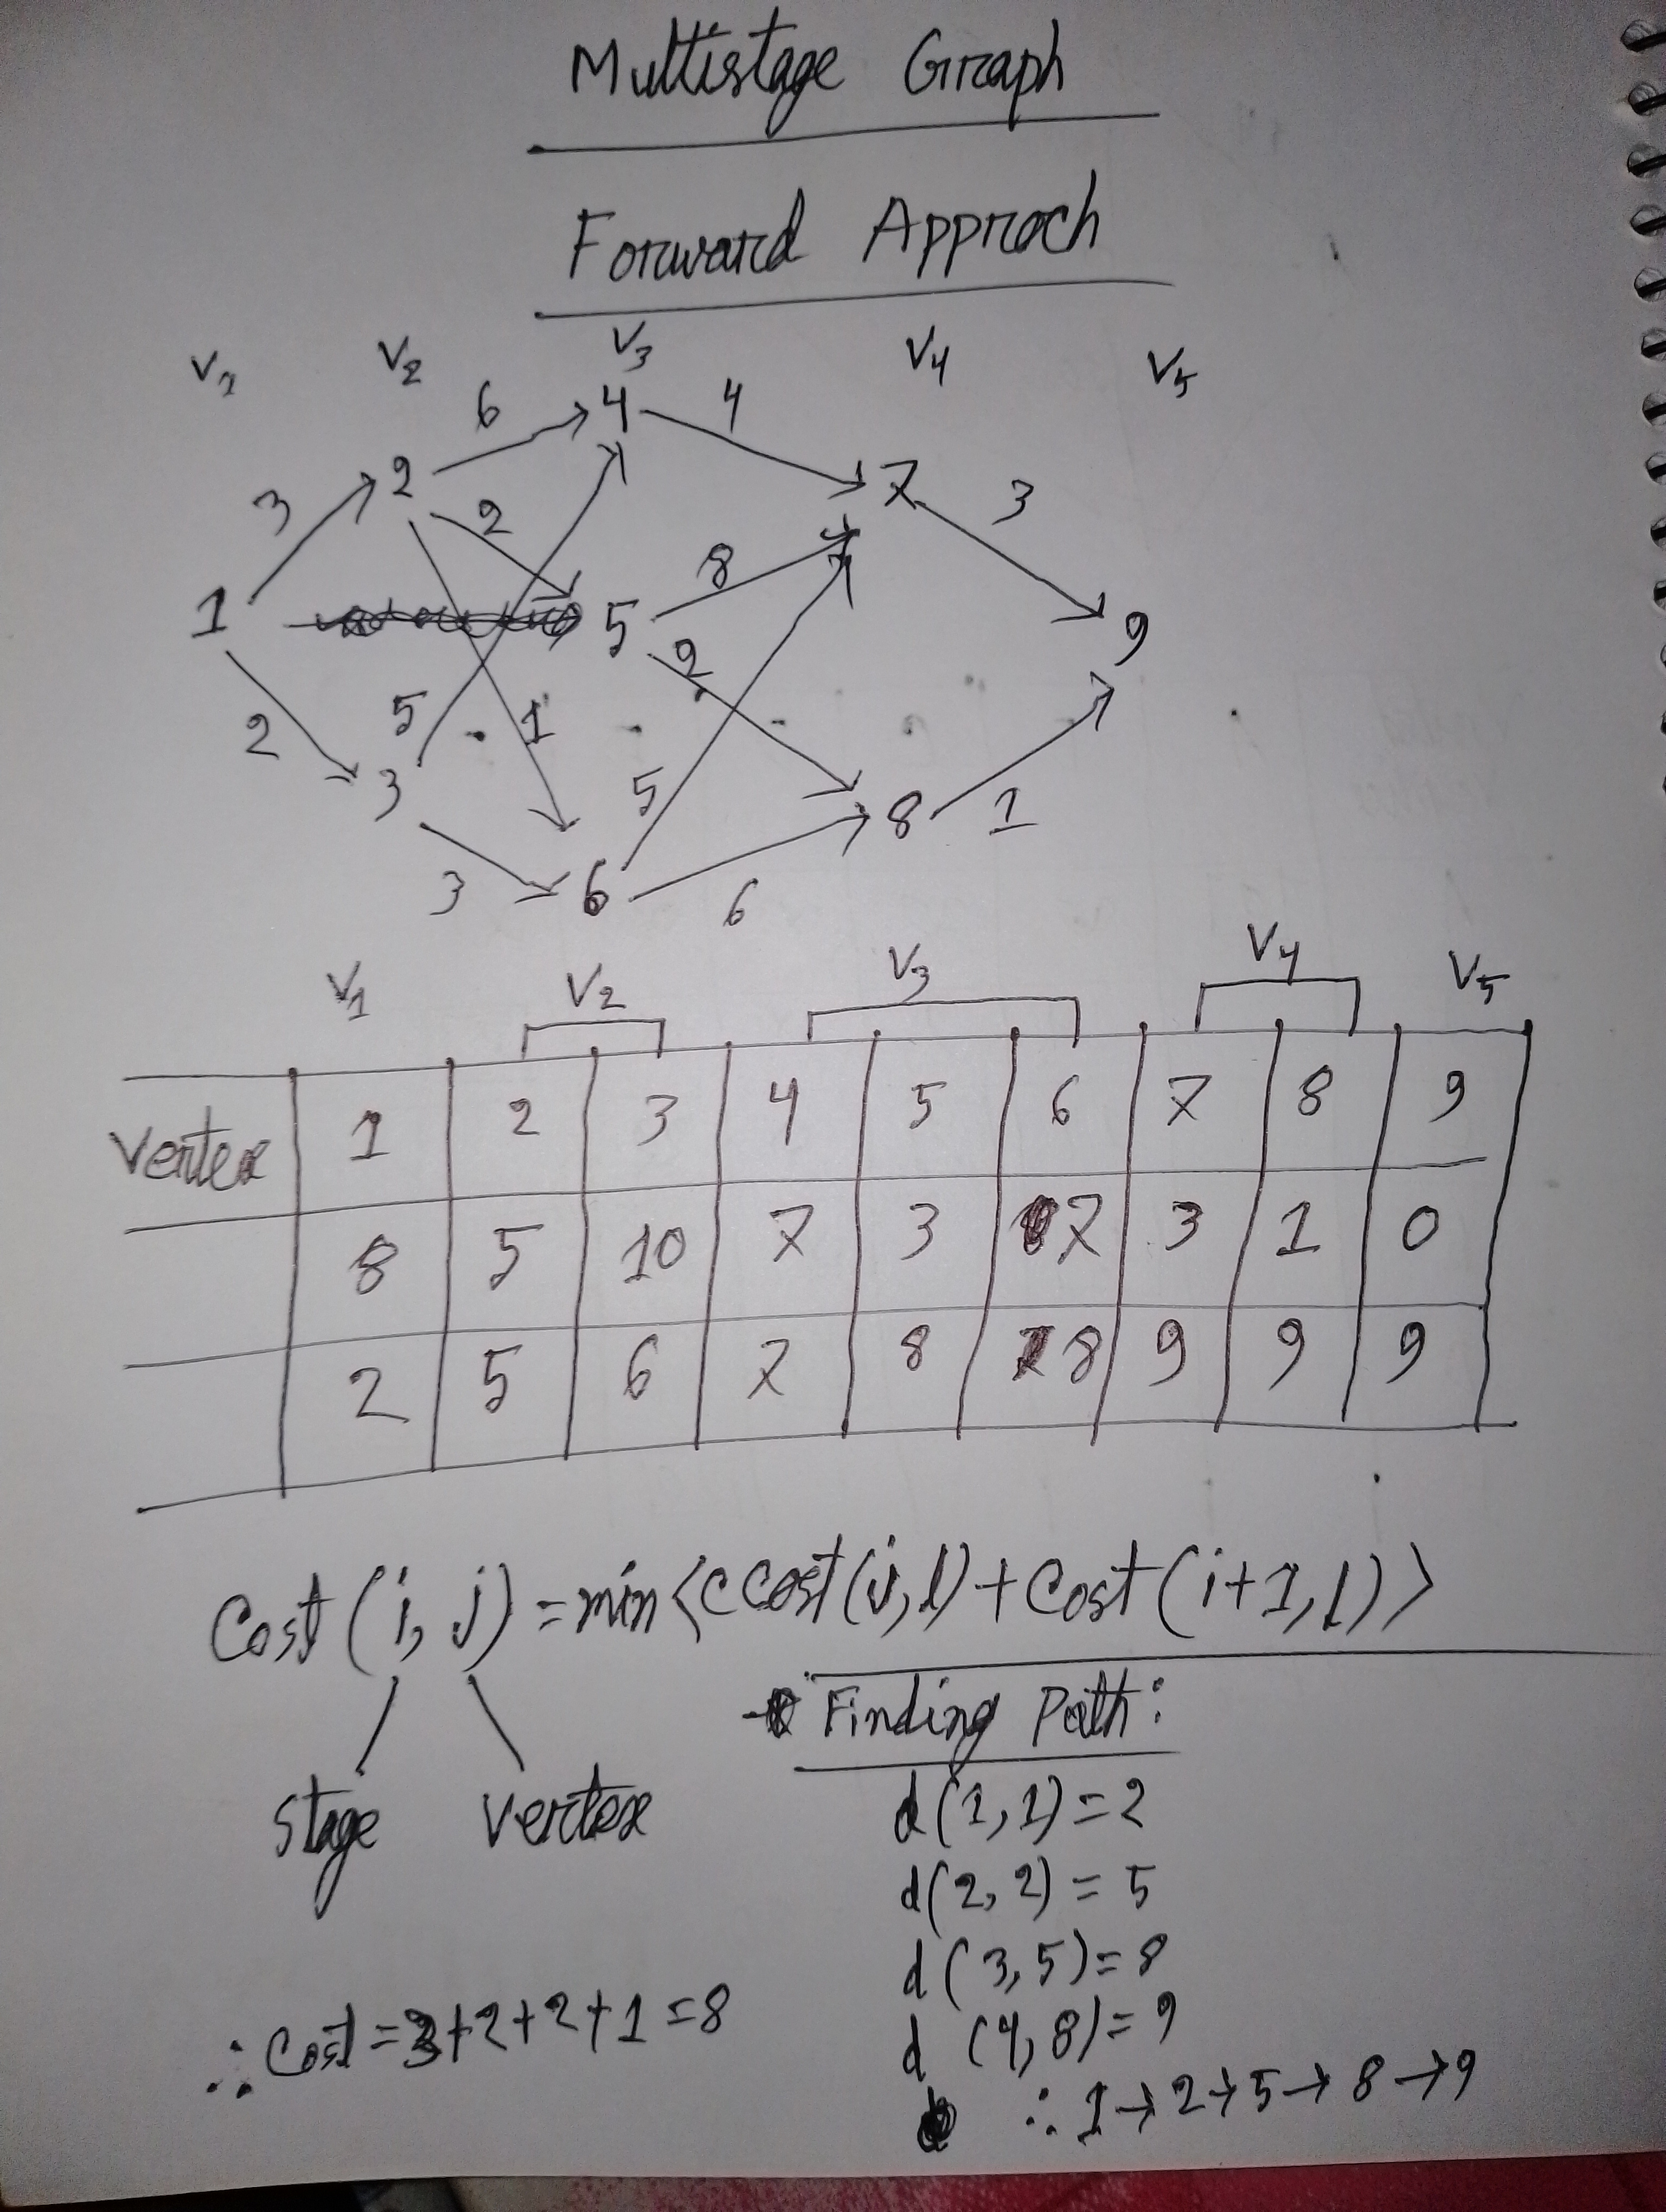 Multistage Graph
Forward Approch
V1 V2 V3 V4 V5
6 4 4
2 7 3
3 2
8
1 5 9
2
5 1
2 3 5 8 1
3 6 6
V1 V2 V3 V4 V5
Vertex 1 2 3 4 5 6 7 8 9
8 5 10 7 3 7 3 1 0
2 5 6 7 8 8 9 9 9
Cost (i, j) = min <c cost (j, l) + Cost (i+1, l)>
stage vertex
Finding Path:
d(1, 1) = 2
d(2, 2) = 5
d(3, 5) = 8
d(4, 8) = 9
∴ 1 → 2 → 5 → 8 → 9
∴ Cost = 3+2+2+1 = 8